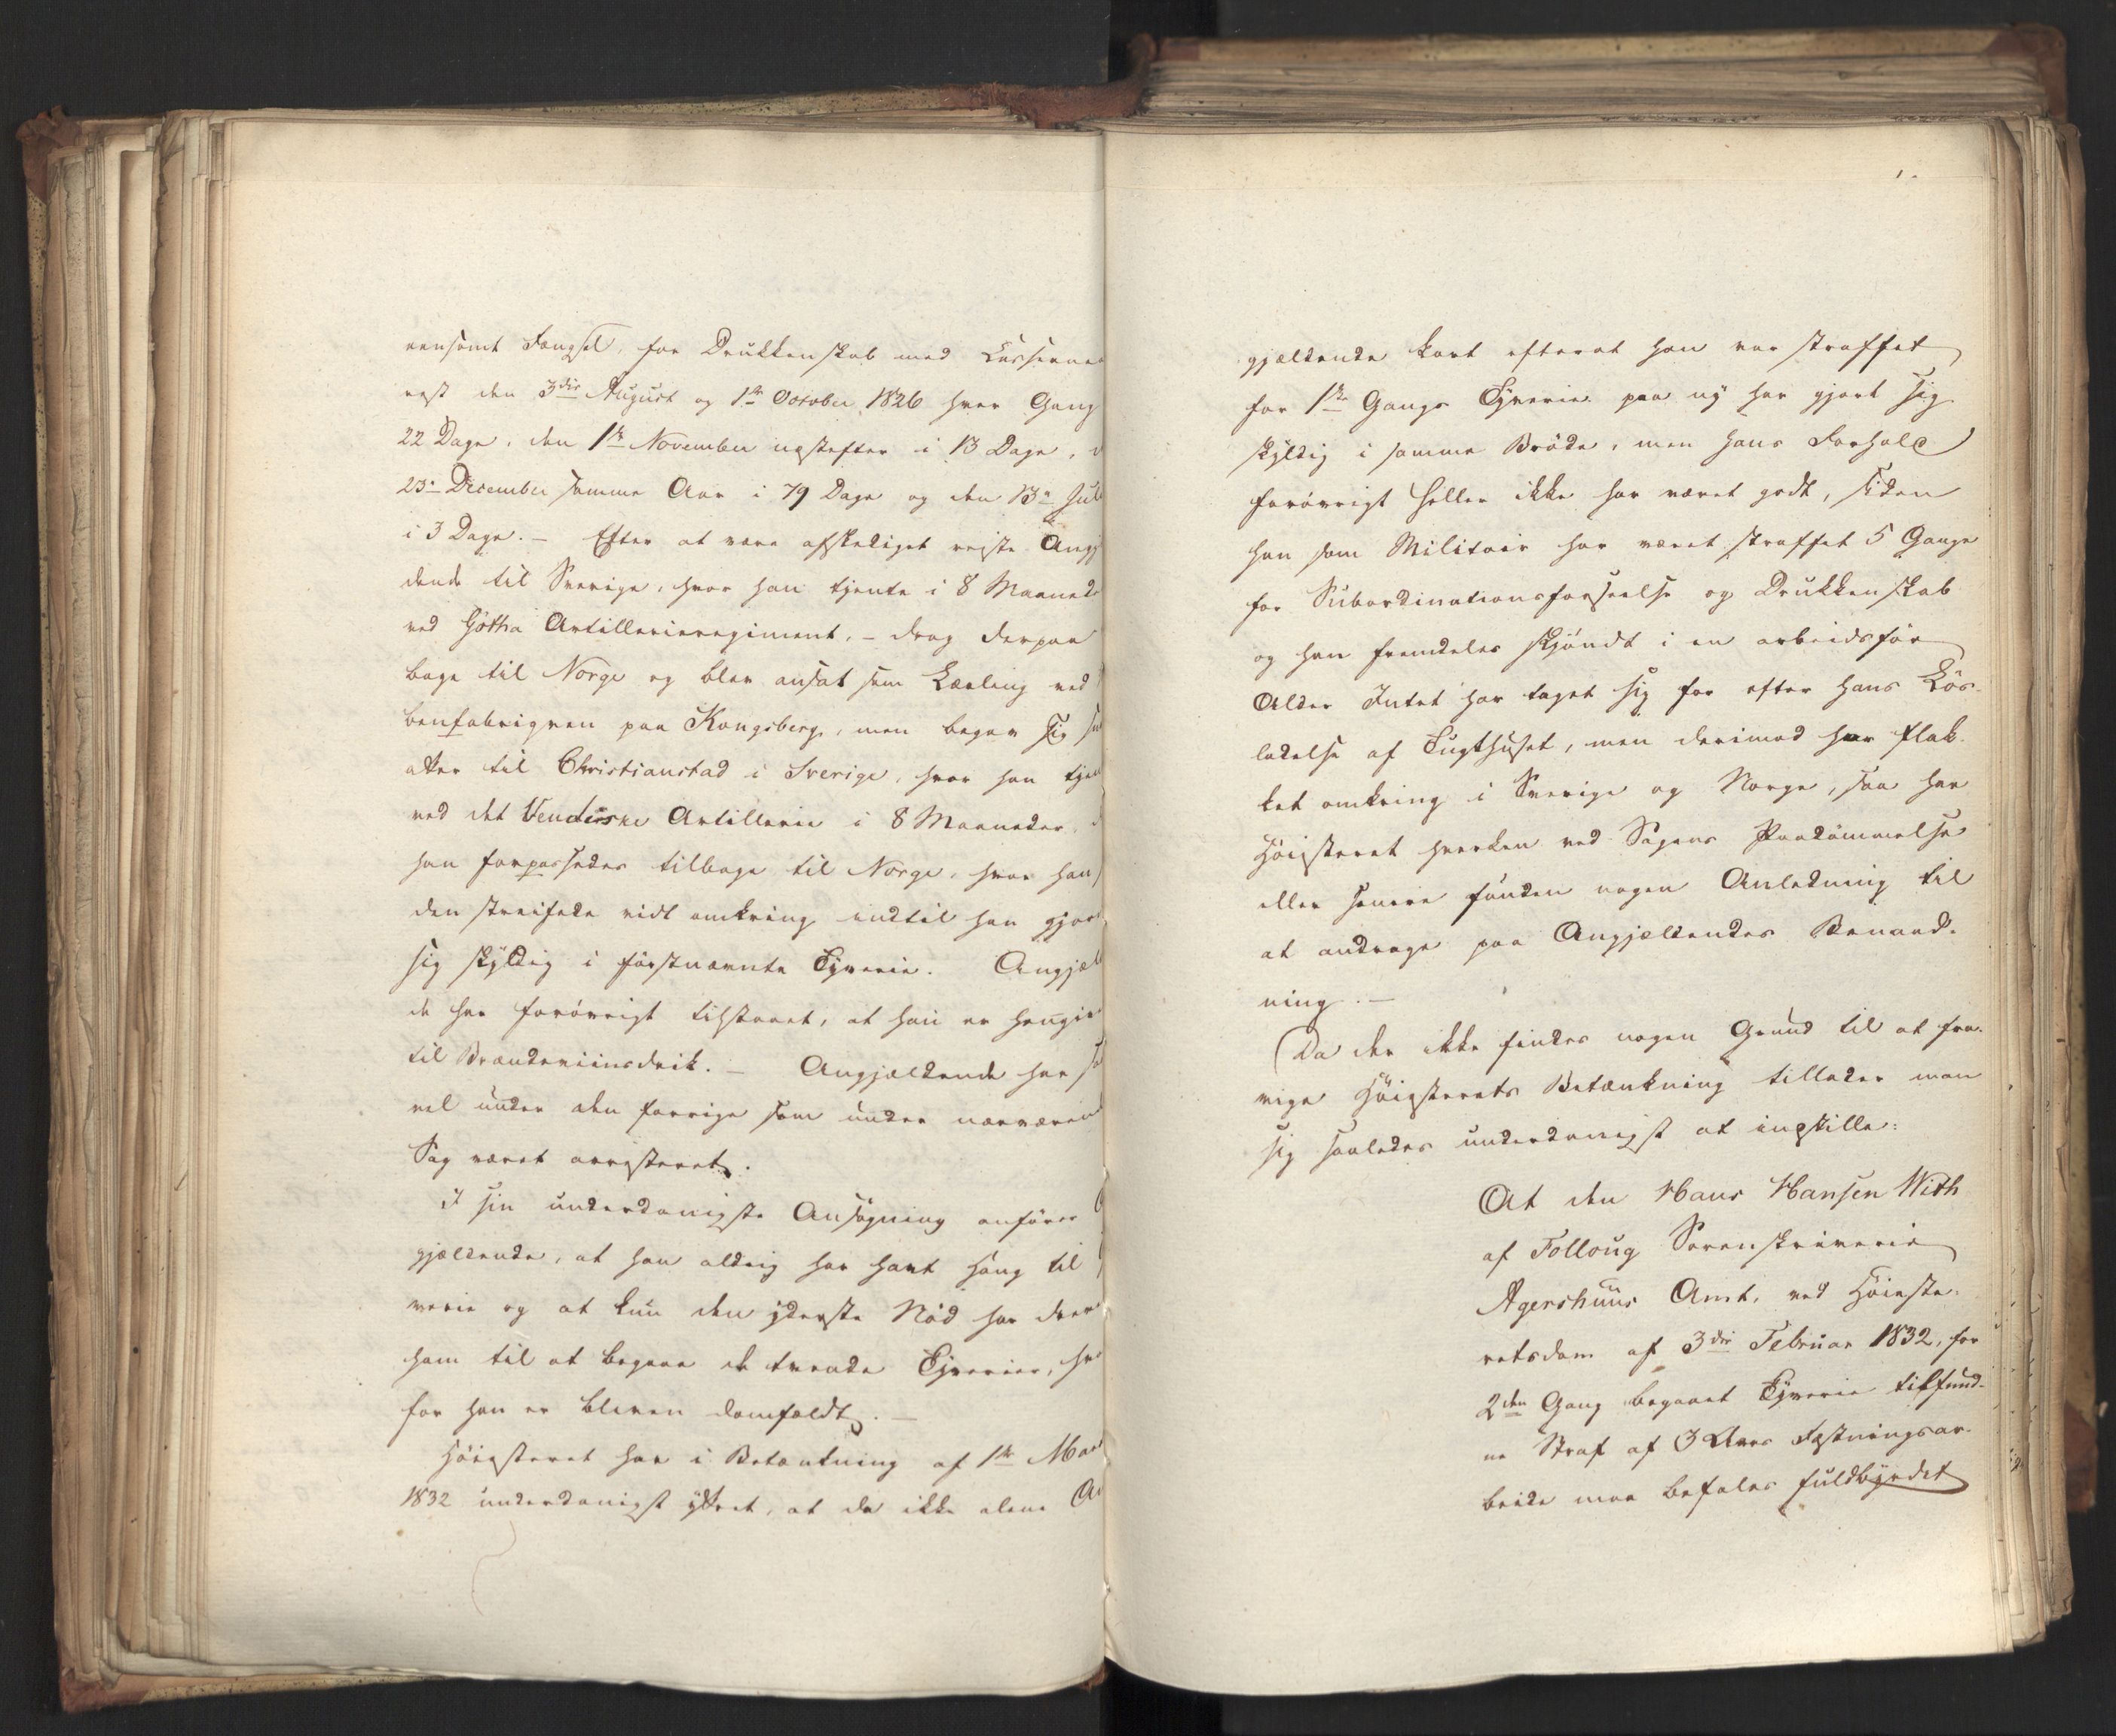 eensomt Fængsel, for Drukkenskab med Casserne
rest den 3die August og 1ste October 1826 hver Gang
22 Dage, den 1ste November næstefter i 13 Dage, d
23de December samme Aar i 79 Dage og den 13de Juli
i 3 Dage. — Efter at være afskediget reiste Angj
dende til Sverige, hvor han tjente i 8 Maaneder
ved Götha Artillerieregiment, – drog derpaa
bage til Norge og blev ansat som Lærling ved
benfabriqven paa Kongsberg, men begav sig
atter til Christianstad i Sverige, hvor han tjen
ved det Vendeske Artillerie i 8 Maaneder,
han forpassedes tilbage til Norge, hvor han
den streifede vidt omkring indtil han gjor
sig skyldig i førstnævnte Tyverie. Angjæl
de har forøvrigt tilstaaet, at han er hengive
til Brændeviinsdrik. — Angjældende har saa
vel under den forrige som under nærværen
Sag været arresteret.
I sin underdanigste Ansøgning anfører
gjældende, at han aldrig har havt Hang til
verie og at kun den yderste Nød har drev
ham til at begaae de tvende Tyverier, hvo
for han er bleven domfældt. —
Høiesteret har i Betænkning af 1ste Mar
1832 underdanigst yttret, at da ikke alene An
gjældende kort efterat han var straffet
for 1ste Gangs Tyverie paa ny har gjort sig
skyldig i samme Brøde, men hans Forhold
forøvrigt heller ikke har været godt, siden
han som Militair har været straffet 5 Gange
for Subordinationsforseelse og Drukkenskab
og han fremdeles skjøndt i en arbeidsfør
Alder Intet har taget sig for efter hans Løs-
ladelse af Tugthuset, men derimod har flak-
ket omkring i Sverige og Norge, saa har
Høiesteret hverken ved Sagens Paadømmelse
eller senere funden nogen Anledning til
at andrage paa Angjældendes Benaad-
ning. —
Da der ikke findes nogen Grund til at fra-
vige Høiesterets Betænkning tillader man
sig saaledes underdanigst at indstille:
At den Hans Hansen With
af Folloug Sorenskriverie
Agershuus Amt, ved Høieste-
retsdom af 3die Februar 1832, for
2den Gang begaaet Tyverie tilfund-
ne Straf af 3 Aars Fæstningsar-
beide maa befales fuldbyrdet